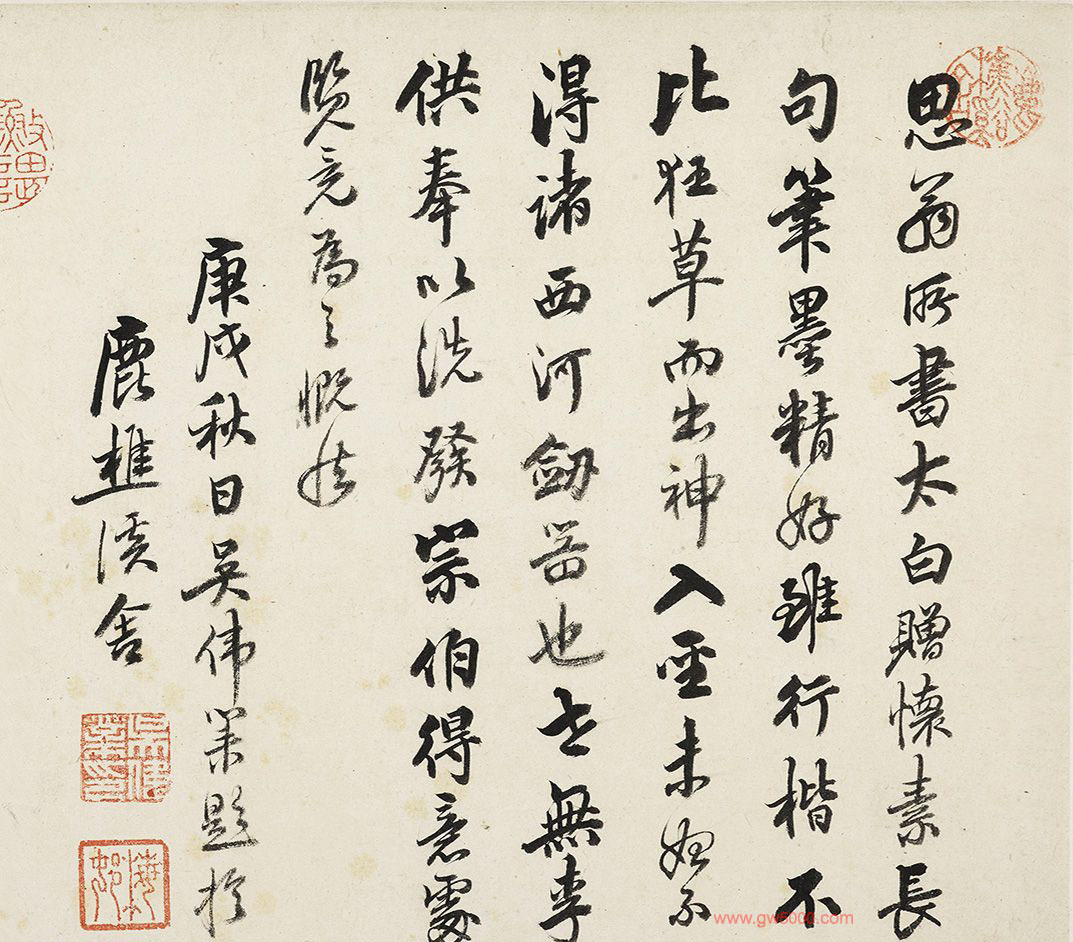 思翁所書太白贈懷素長
句筆墨精好雖行楷不
比狂草而出神入聖未始不
得諸西河劒器也世無李
供奉以洗發宗伯得意處
覽竟爲之慨然
庚戌秋日吳偉業題於
鹿樵溪舍
www.gw5000.com